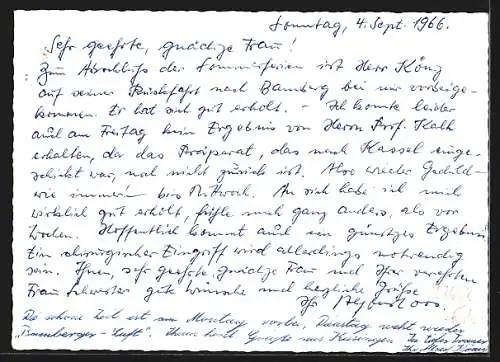 Sonntag, 4. Sept. 1966.
Sehr geehrte, gnädige Frau!
Zum Abschluß der Sommerferien ist Herr König
auf seiner Rückfahrt nach Bamberg bei mir vorbeige-
kommen. Er hat sich gut erholt. - Ich konnte leider
auch am Freitag kein Ergebnis von Herrn Prof. Kalk
erhalten, da das Präparat, das nach Kassel einge-
schickt war, noch nicht zurück ist. Also wieder Geduld -
wie immer! bis Mittwoch. An sich habe ich mich
wirklich gut erholt, fühle mich ganz anders, als vor
Wochen. Hoffentlich kommt auch ein günstiges Ergebnis
Ein chirurgischer Eingriff wird allerdings notwendig
sein. Ihnen, sehr geehrte, gnädige Frau und Ihrer verehrten
Frau Schwester gute Wünsche und herzliche Grüße
Ihr
Die schöne Zeit ist am Montag vorbei, Dienstag weht wieder
"Bamberger-Luft". Ihnen noch Grüße aus Kissingen In
Ihr